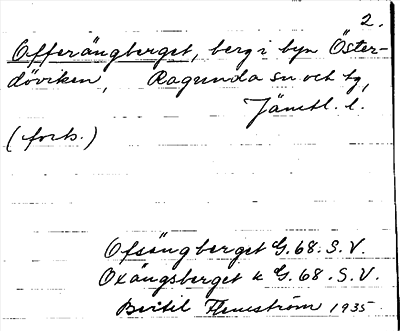 2.
Offerängberget, berg i byn Öster-
döviken, Ragunda sn och tg,
Jämtl. l.
(forts.)
Ofsängberget G.68.S.V.
Oxängsberget k G.68.S.V.
Bertil Flemström 1935